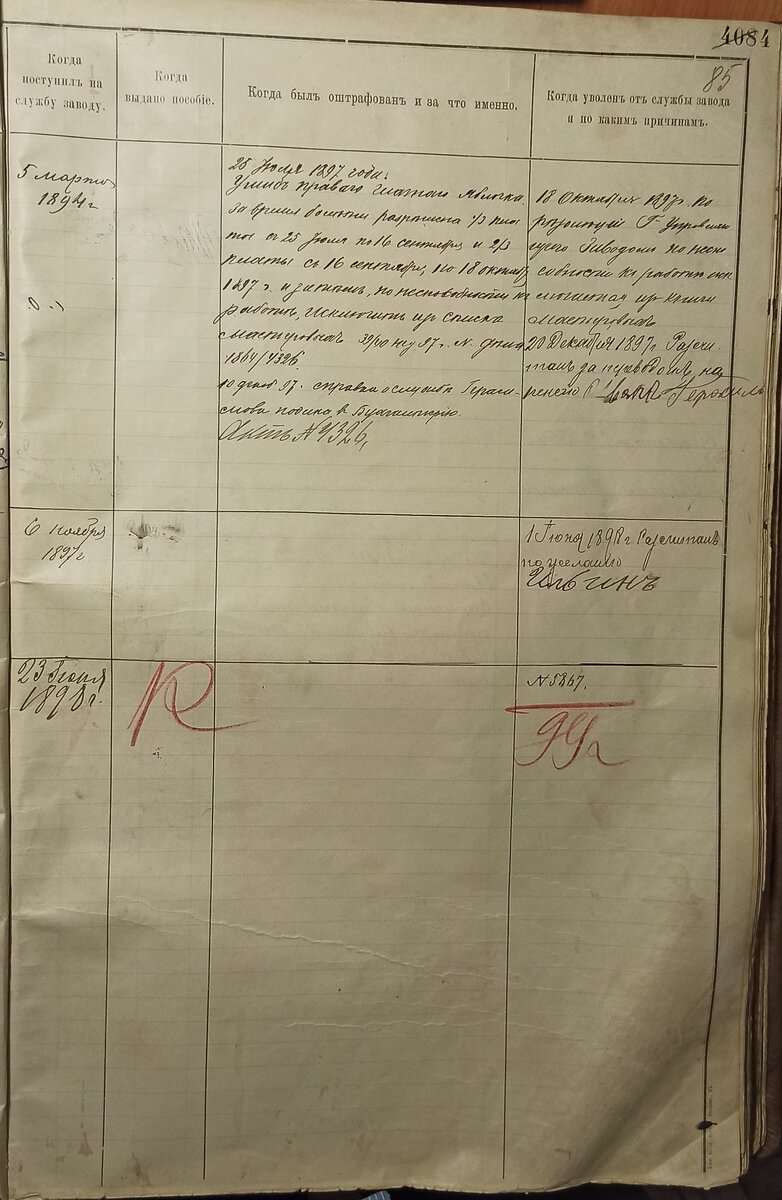 4084
85
Когда
поступилъ на
службу заводу.
Когда
выдано пособіе.
Когда былъ оштрафованъ и за что именно.
Когда уволенъ отъ службы завода
и по какимъ причинамъ.
5 марта
1894 г
25 Іюля 1897 года.
Ушибъ праваго глазного яблока
за время болѣзни разрѣшена 1/3 пла
ты съ 25 Іюля по 16 сентября и 2/3
платы съ 16 сентября, по 18 октября
1897 г. и затѣмъ, по неспособности къ
работѣ, исключить изъ списка
мастеровыхъ
1864/4326
10 декаб 97. справка о службѣ Гераси-
мова подана въ Бухгалтерію.
Актъ № 4326,
18 Октября 1897 г. по
резолюціи Г. Управляю
щего Заводомъ по неспо
собности къ работѣ
изъ
мастеровыхъ
20 Декабря 1897 г. Разсчи-
танъ за переводомъ на
пенсію
6 ноября
1897 г.
1 Іюня 1898 г Разсчитанъ
по желанію
23 Іюня
1898 г.
№ 5867.
99 г